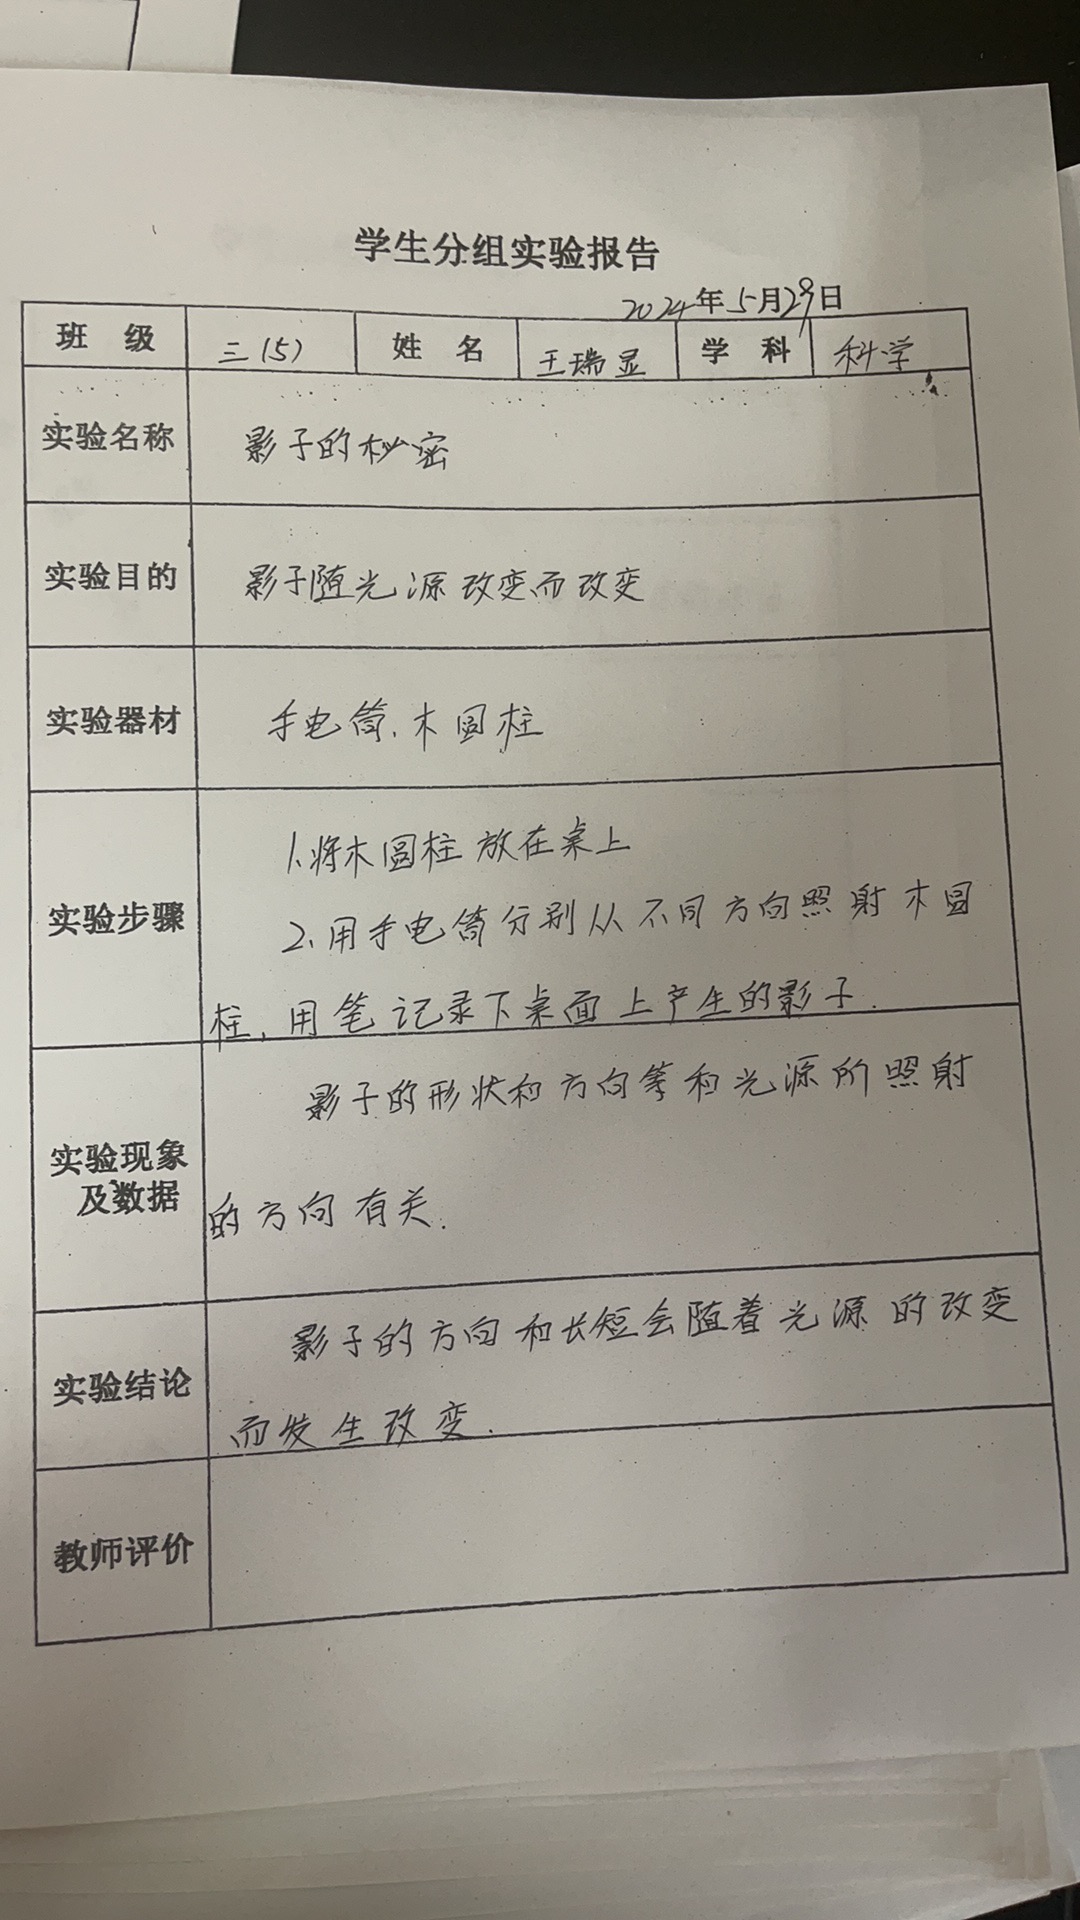 学生分组实验报告
2024年5月29日
班 级 三(5) 姓 名 王瑞显 学 科 科学
实验名称 影子的秘密
实验目的 影子随光源改变而改变
实验器材 手电筒、木圆柱
实验步骤
1.将木圆柱放在桌上
2.用手电筒分别从不同方向照射木圆
柱,用笔记录下桌面上产生的影子.
实验现象
及数据
影子的形状和方向等和光源所照射
的方向有关.
实验结论
影子的方向和长短会随着光源的改变
而发生改变.
教师评价